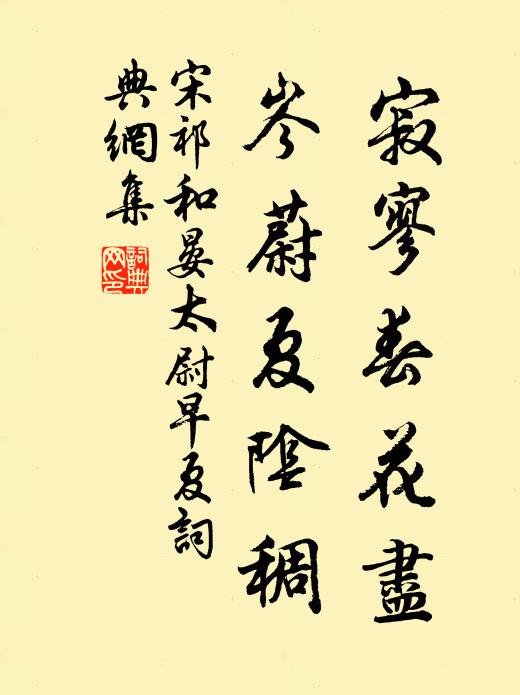 寂寥春花盡
岑蔚夏陰稠
宋祁和晏太尉早夏詞
典網集
詞典網印